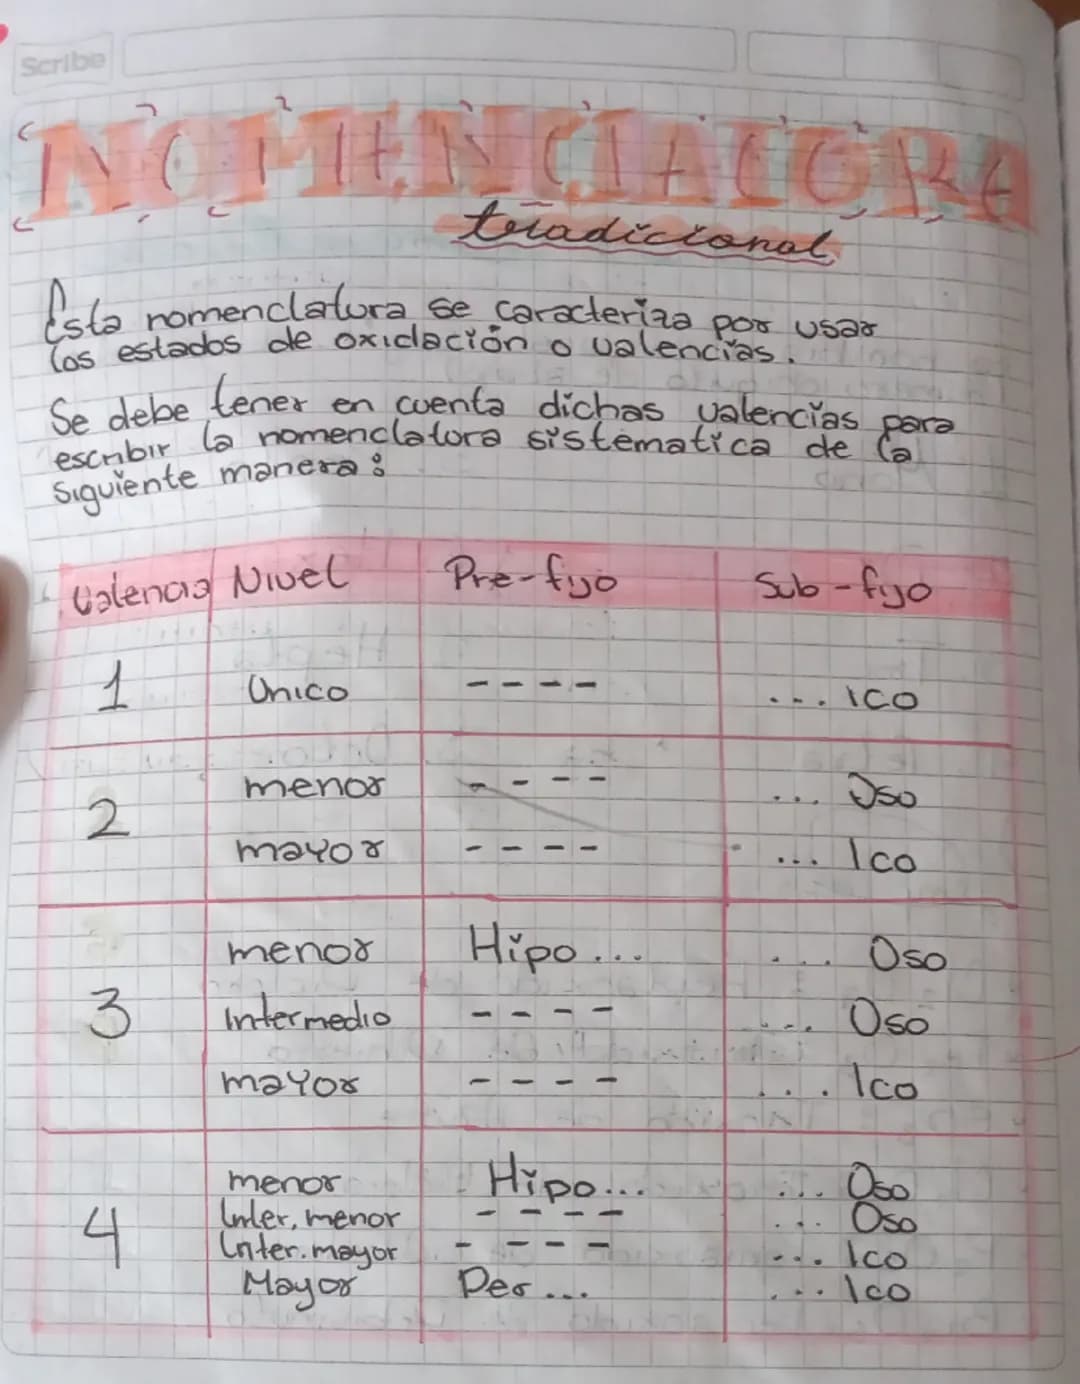 Scribe
NOMENCLATURA
tradicional
Esta nomenclatura se caracteriza por usar
los estados de oxidación o valencias.
Se debe tener en cuenta dichas valencias para
escribir la nomenclatura sistematica de la
siguiente manera:
Valencia Nivel Pre-fijo Sub-fijo
1 Unico ---- ... ico
2 menor ---- ... Oso
mayor ---- ... Ico
3 menor Hipo... ... Oso
Intermedio ---- ... Oso
mayor ---- ... Ico
4 menor Hipo... ... Oso
Inter. menor ---- ... Oso
Inter. mayor ---- ... Ico
Mayor Per... ... Ico